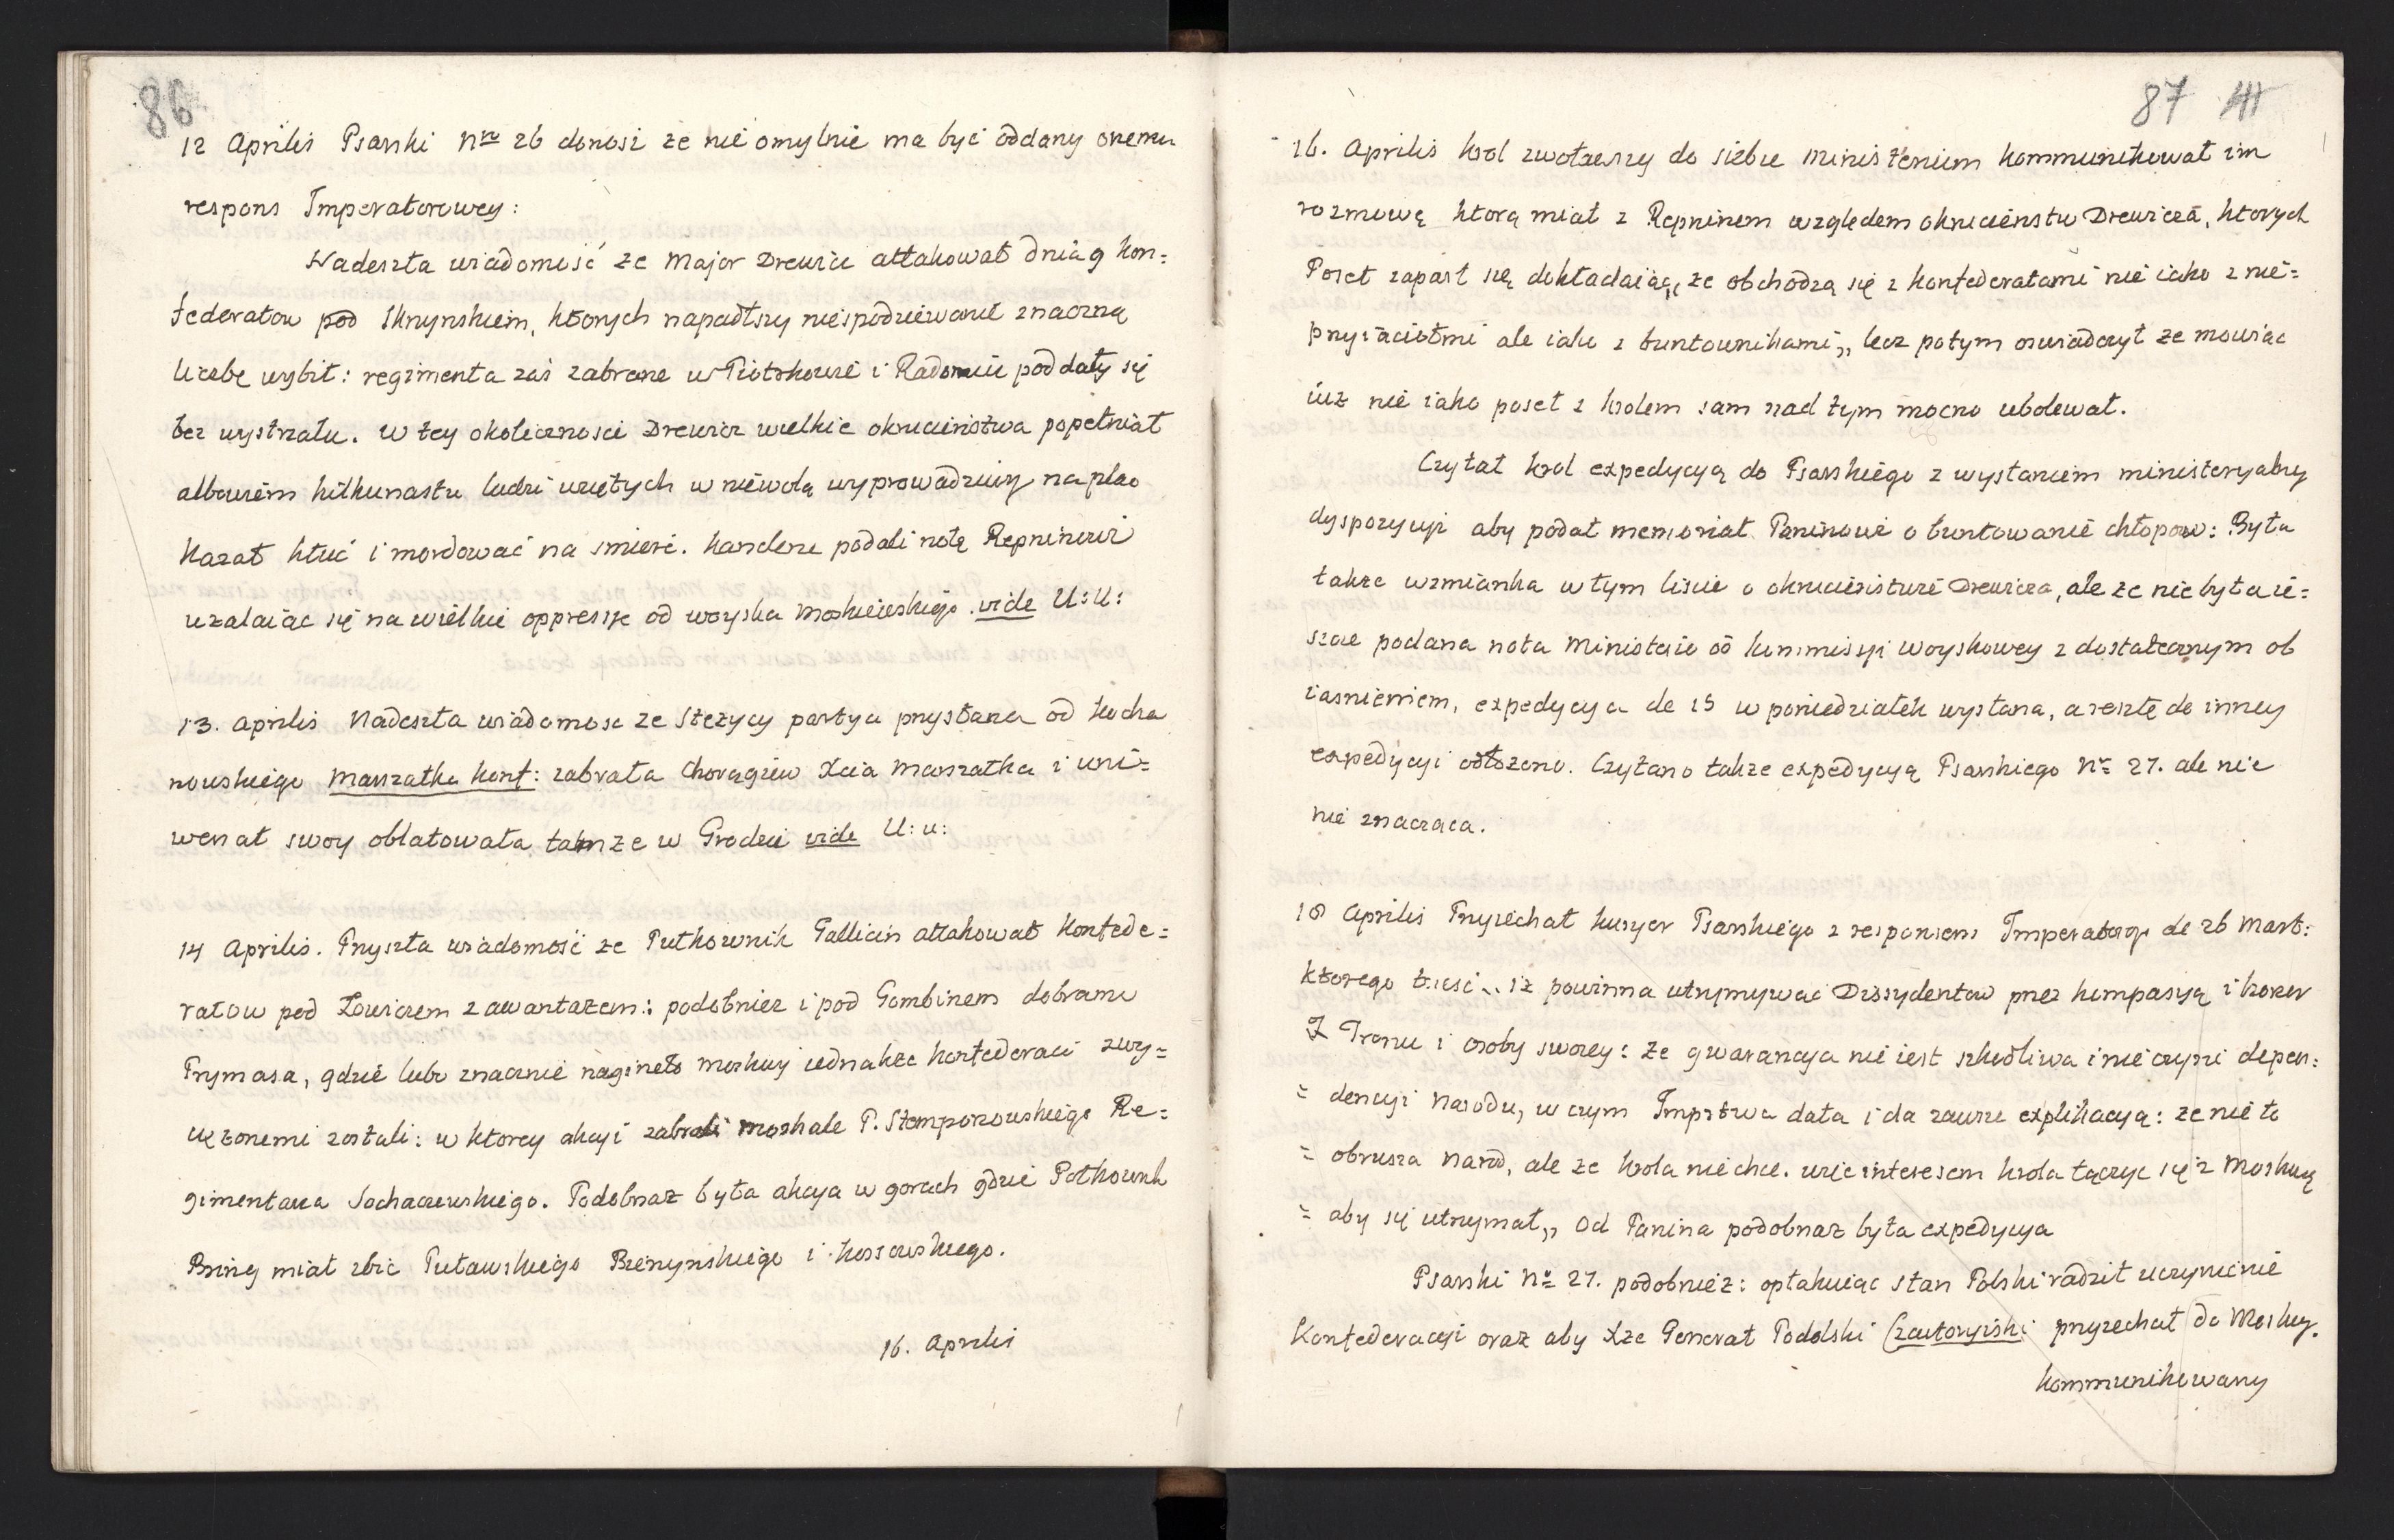 86
12 Aprilis Psarski Nro 26 donosi ze nieomylnie ma być oddany onemu
respons Imperatorowey:
Nadeszła wiadomość ze Major Drewicz attakował dnia 9 kon=
federatow pod Skrynskiem, ktorych napadłszy niespodziewanie znaczną
liczbę wybił: regimenta zaś zabrane w Piotrkowie i Radomiu poddały się
bez wystrzału. W tey okoliczności Drewicz wielkie okrucieństwa popełniał
albowiem kilkunastu ludzi wziętych w niewolą wyprowadziwszy na plac
kazał kłuć i mordować na smierć. Kanclerze podali notę Repninowi
uzalaiąc się na wielkie oppressye od woyska moskiewskiego. vide U: U:
13. Aprilis Nadeszła wiadomosc ze Stezycy partya przysłana od Kocha
nowskiego Marszałka konf: zabrała Chorągiew Xcia Marszałka i uni=
wersał swoy oblatowała tamze w Grodzie vide U: u:
14 Aprilis. Przyszła wiadomość ze Pułkownik Gallicin attakował Konfede=
ratow pod Łowiczem z awantazem: podobniez i pod Gombinem dobrami
Prymasa, gdzie lubo znacznie naginęło moskwy iednakze konfederaci zwy=
ciężonemi zostali: w ktorey akcyi zabrali moskale P. Stemporowskiego Re=
gimentarza Sochaczewskiego. Podobnaz była akcya w gorach gdzie Połkownik
Bring miał zbic Puławskiego Bierzynskiego i Kossowskiego.
16. Aprilis
87
16. Aprilis krol zwoławszy do siebie ministerium kommunikował im
rozmowę ktorą miał z Repninem względem okrucienstw Drewicza, ktorych
Poseł zaparł się dokładaiąc, ze obchodzą się z konfederatami nie iako z nie=
przyiaciołmi ale iako z buntownikami„ lecz potym oswiadczył ze mowiąc
iuz nie iako poseł z krolem sam nad tym mocno ubolewał.
Czytał krol expedycyą do Psarskiego z wysłaniem ministeryalney
dyspozycyi aby podał memoriał Paninowi o buntowanie chłopow: Była
takze wzmianka w tym liscie o okrucieństwie Drewicza, ale ze nie była ie=
szcze podana nota Ministerio od kommissyi Woyskowey z dostatecznym ob
iasnieniem, expedycya de 15 w poniedziałek wysłana, a resztę do inney
expedycyi odłozono. Czytano takze expedycyą Psarskiego No 27. ale nic
nie znacząca.
18 Aprilis Przyiechał kuryer Psarskiego z responsem Imperatorowy de 26 Mart:
ktorego tresć „ iz powinna utrzymywać Dissydentow przez kompasyą i honor
= Tronu i osoby swoiey: ze gwarancya nie iest szkodliwa i nie czyni depen=
= dencyi Narodu, w czym Imprtwa dała i da zawsze explikacyą: ze nie to
= obrusza Narod, ale ze krola nie chce. więc interesem krola łączyc się z Moskwą
= aby się utrzymał„ Od Panina podobnaz była expedycya
Psarski No 27. podobniez: opłakuiąc stan Polski radził uczynienie
Konfederacyi oraz aby Xze Generał Podolski Czartoryiski przyiechał do Moskwy.
kommunikowany